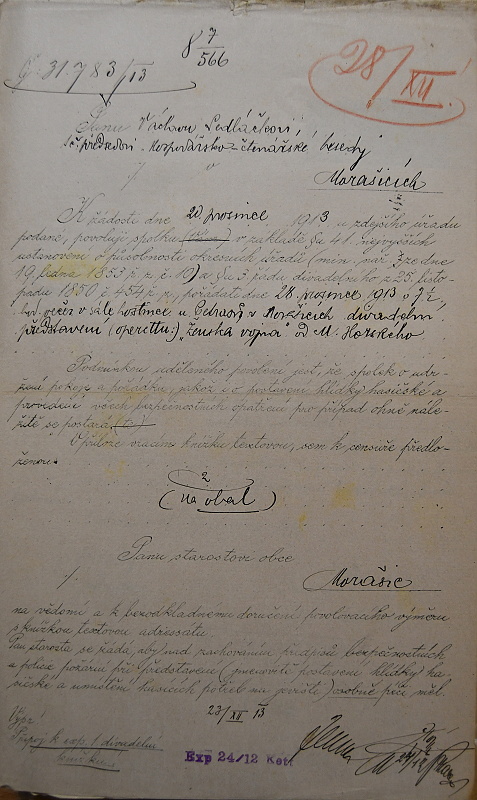 č. 31.783/13
8 7/566
28/XII.
Panu Václavu Sedláčkovi,
předsedovi „Hospodářsko-čtenářské besedy"
v
Morašicích
K žádosti dne 20 prosince 1913, u zdejšího úřadu
podané, povoluji spolku v základě §u 41. nejvyšších
ustanovení o působnosti okresních úřadů (min. nař. ze dne
19. ledna 1853 č. z. ř. 10) a §u 3. řádu divadelního z 25. listo-
padu 1850 č. 454 ř. z., pořádati dne 28. prosince 1913 o
hod. večer v sále hostince u v Morašicích divadelní
představení (operettu:) „ženská vojna" od M. Horského
Podmínkou uděleného povolení jest, že spolek o udr-
žení pokoje a pořádku, jakož i o postavení hlídky hasičské a
provedení všech bezpečnostních opatření pro případ ohně nále-
žitě se postará.
V příloze vracím knížku textovou, sem k censuře předlo-
ženou.
2
(na obal)
Panu starostovi obce
Morašic
na vědomí a k bezodkladnému doručení povolovacího výměru
s knížkou textovou adressátu.
Pan starosta se žádá, aby nad zachováním předpisů bezpečnostních
a policie požární při představení (jmenovitě postavení hlídky ha-
sičské a umístění hasicích potřeb na jevišti) osobně péči měl.
23/XII 13
Připoj k exp. 1 divadelní
knížku
Exp 24/12 Kett